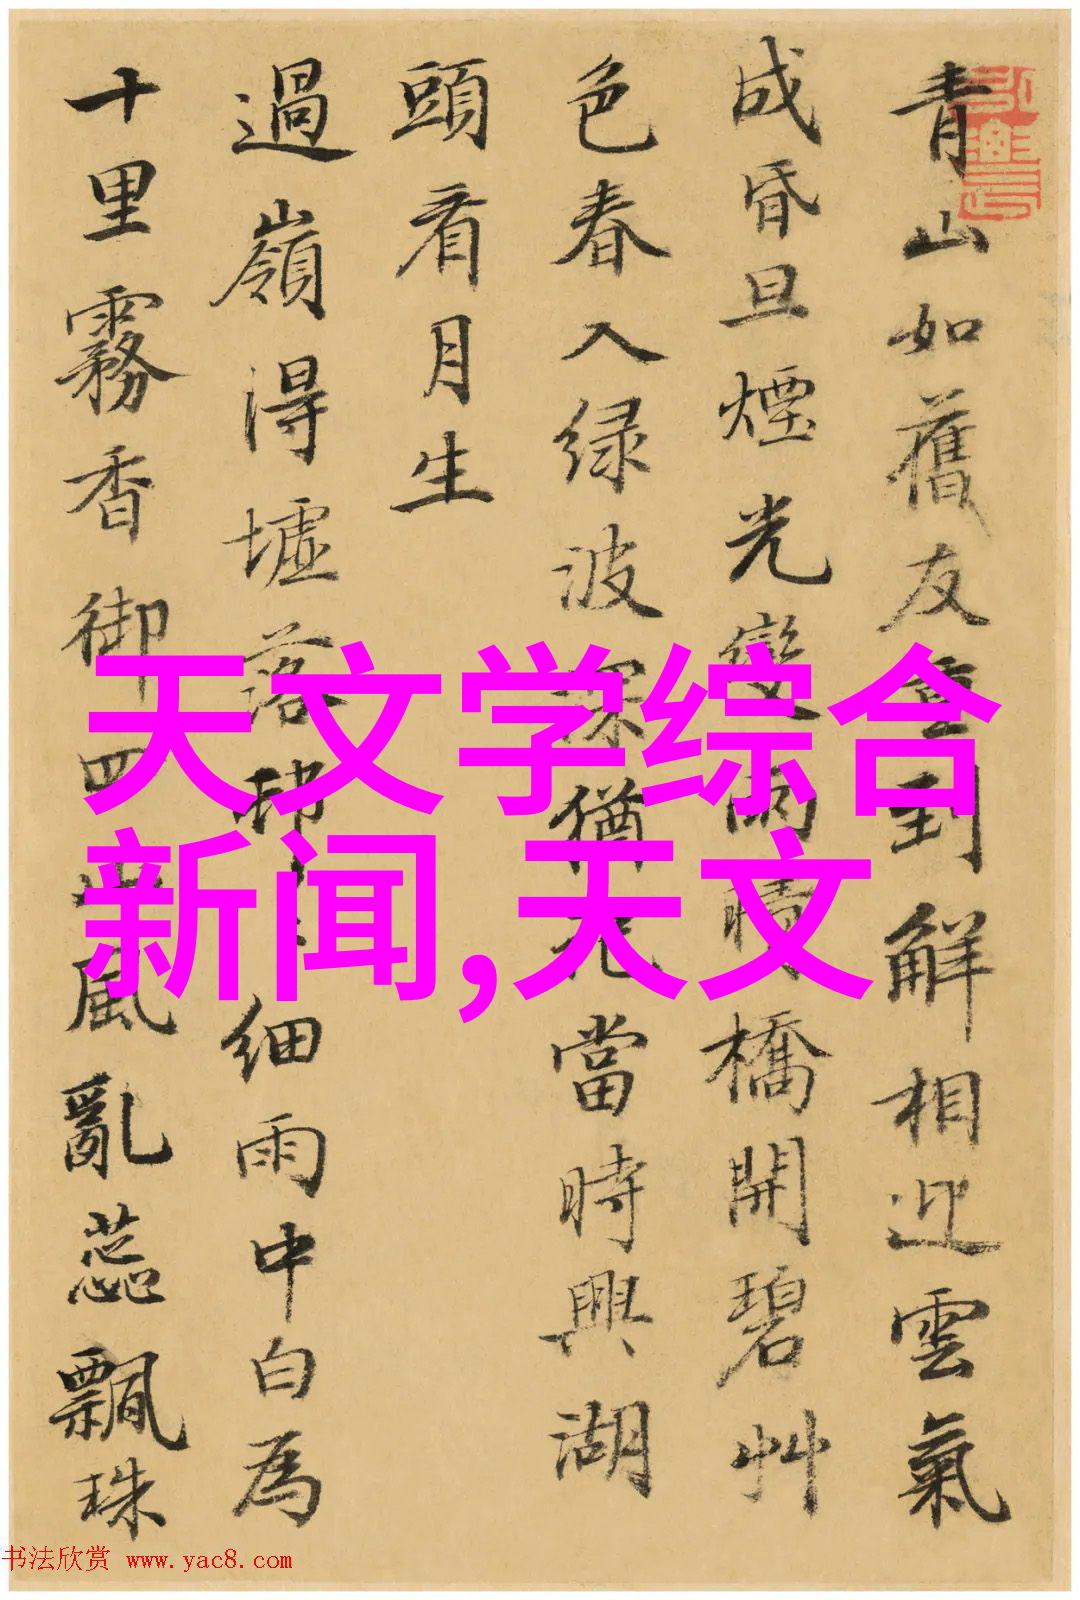 青山如舊友重到解相迎雲氣
成昏旦煙光變雨晴橋開碧艸
色春入绿波深猶當時興湖
頭看月生
過嶺得墟落邨細雨中白為
十里霧香御四山風亂蕊飄珠
天文学综合
新闻,天文
书法欣赏 www.yac8.com